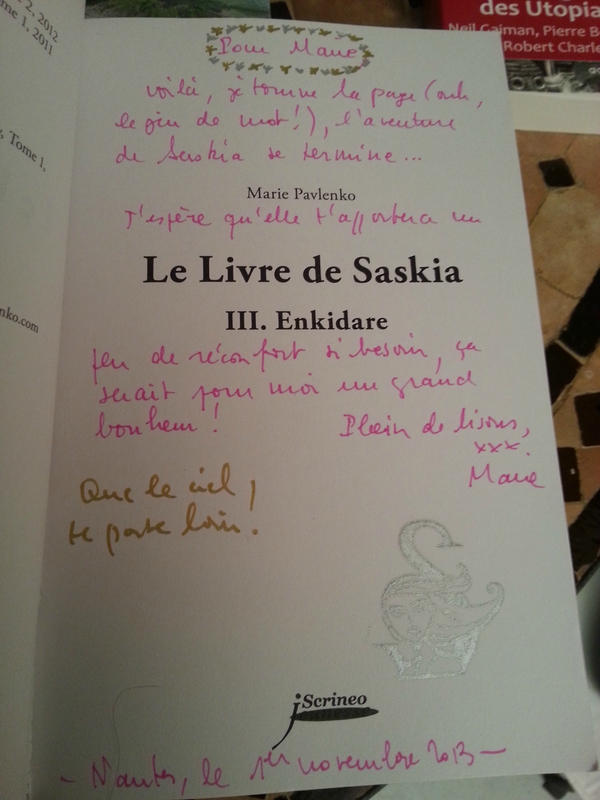 2, 2012
me 1, 2011
Tome 1,
nko.com
des Utopia
Neil Gaiman, Pierre B
Robert Charle
Pour Marie
voilà, je tourne la page (ouh,
le jeu de mot!), l'aventure
de Saskia se termine...
Marie Pavlenko
J'espère qu'elle t'apportera un
Le Livre de Saskia
III. Enkidare
peu de réconfort si besoin, ça
serait pour moi un grand
bonheur!
Plein de bisous,
xxx.
Marie
Que le ciel
te porte loin!
jScrineo
Nantes, le 1er novembre 2013